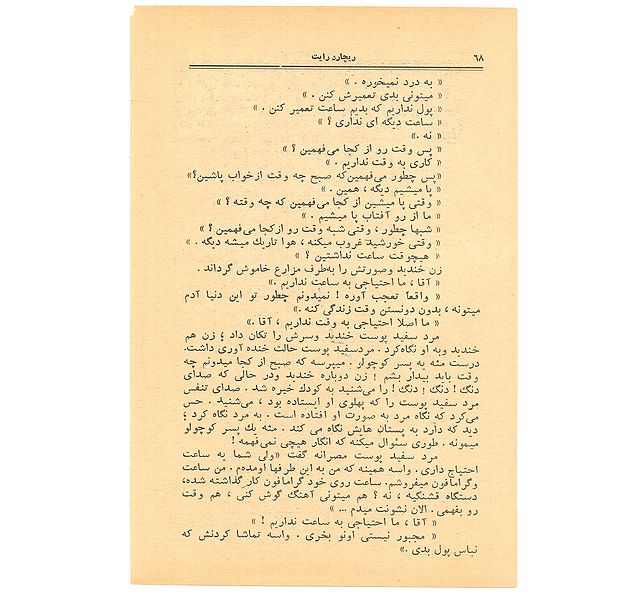 ۶۸
ریچارد رایت
« به درد نمیخوره . »
« میتونی بدی تعمیرش کنن . »
« پول نداریم که بدیم ساعت تعمیر کنن . »
« ساعت دیگه ای نداری ؟ »
« نه .»
« پس وقت رو از کجا می‌فهمین ؟ »
« کاری به وقت نداریم . »
«پس چطور می‌فهمین‌که صبح چه وقت ازخواب پاشین؟»
« پا میشیم دیگه ، همین . »
« وقتی پا میشین از کجا می‌فهمین که چه وقته ؟ »
« ما از رو آفتاب پا میشیم . »
« شبها چطور ، وقتی شبه وقت رو ازکجا می‌فهمین ؟ »
« وقتی خورشید غروب میکنه ، هوا تاریك میشه دیگه . »
« هیچوقت ساعت نداشتین ؟ »
زن خندید وصورتش را به‌طرف مزارع خاموش گرداند .
« آقا ، ما احتیاجی به ساعت نداریم .»
« واقعاً تعجب آوره ! نمیدونم چطور تو این دنیا آدم
میتونه ، بدون دونستن وقت زندگی کنه .»
« ما اصلا احتیاجی به وقت نداریم ، آقا .»
مرد سفید پوست خندید وسرش را تکان داد ؛ زن هم
خندید وبه او نگاه‌کرد . مردسفید پوست حالت خنده آوری داشت.
درست مثه یه پسر کوچولو . میپرسه که صبح از کجا میدونم چه
وقت باید بیدار بشم ! زن دوباره خندید ودر حالی که صدای
دنگ ! دنگ ! دنگ ! را می‌شنید به کودك خیره شد . صدای تنفس
مرد سفید پوست را که پهلوی او ایستاده بود ، می‌شنید . حس
می‌کرد که نگاه مرد به صورت او افتاده است . به مرد نگاه کرد ؛
دید که دارد به پستان هایش نگاه می کند . مثه یك پسر کوچولو
میمونه . طوری سئوال میکنه که انگار هیچی نمی‌فهمه !
مرد سفید پوست مصرانه گفت «ولی شما به ساعت
احتیاج داری . واسه همینه که من به این طرفها اومده‌م . من ساعت
وگرامافون میفروشم. ساعت روی خود گرامافون کار گذاشته شده،
دستگاه قشنگیه ، نه ؟ هم میتونی آهنگ گوش کنی ، هم وقت
رو بفهمی . الان نشونت میدم ... »
« آقا ، ما احتیاجی به ساعت نداریم ! »
« مجبور نیستی اونو بخری . واسه تماشا کردنش که
نباس پول بدی .»